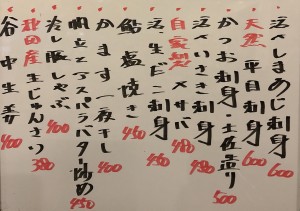 活〆しまあじ刺身 600
天然 平目刺身 600
かつお刺身・土佐造り 500
活〆いさき刺身 480
自家製 〆サバ 480
活、生だこ刺身 450
鮎塩焼き 450
かます一夜干し 400
帆立てアスパラバター炒め 450
冷し豚しゃぶ 400
秋田産生じゅんさい 380
谷中生姜 400